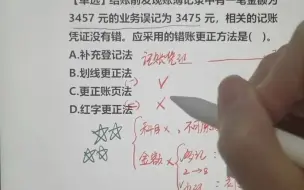 【单选】结账前发现账簿记录中有一笔金额为
3457 元的业务误记为 3475 元，相关的记账
凭证没有错。应采用的错账更正方法是( )。
A.补充登记法 记账凭证
B.划线更正法 (一) √
C.更正账页法
D.红字更正法 (二) ×
科目×，不利用
金额×
多记：
2→8
少记：